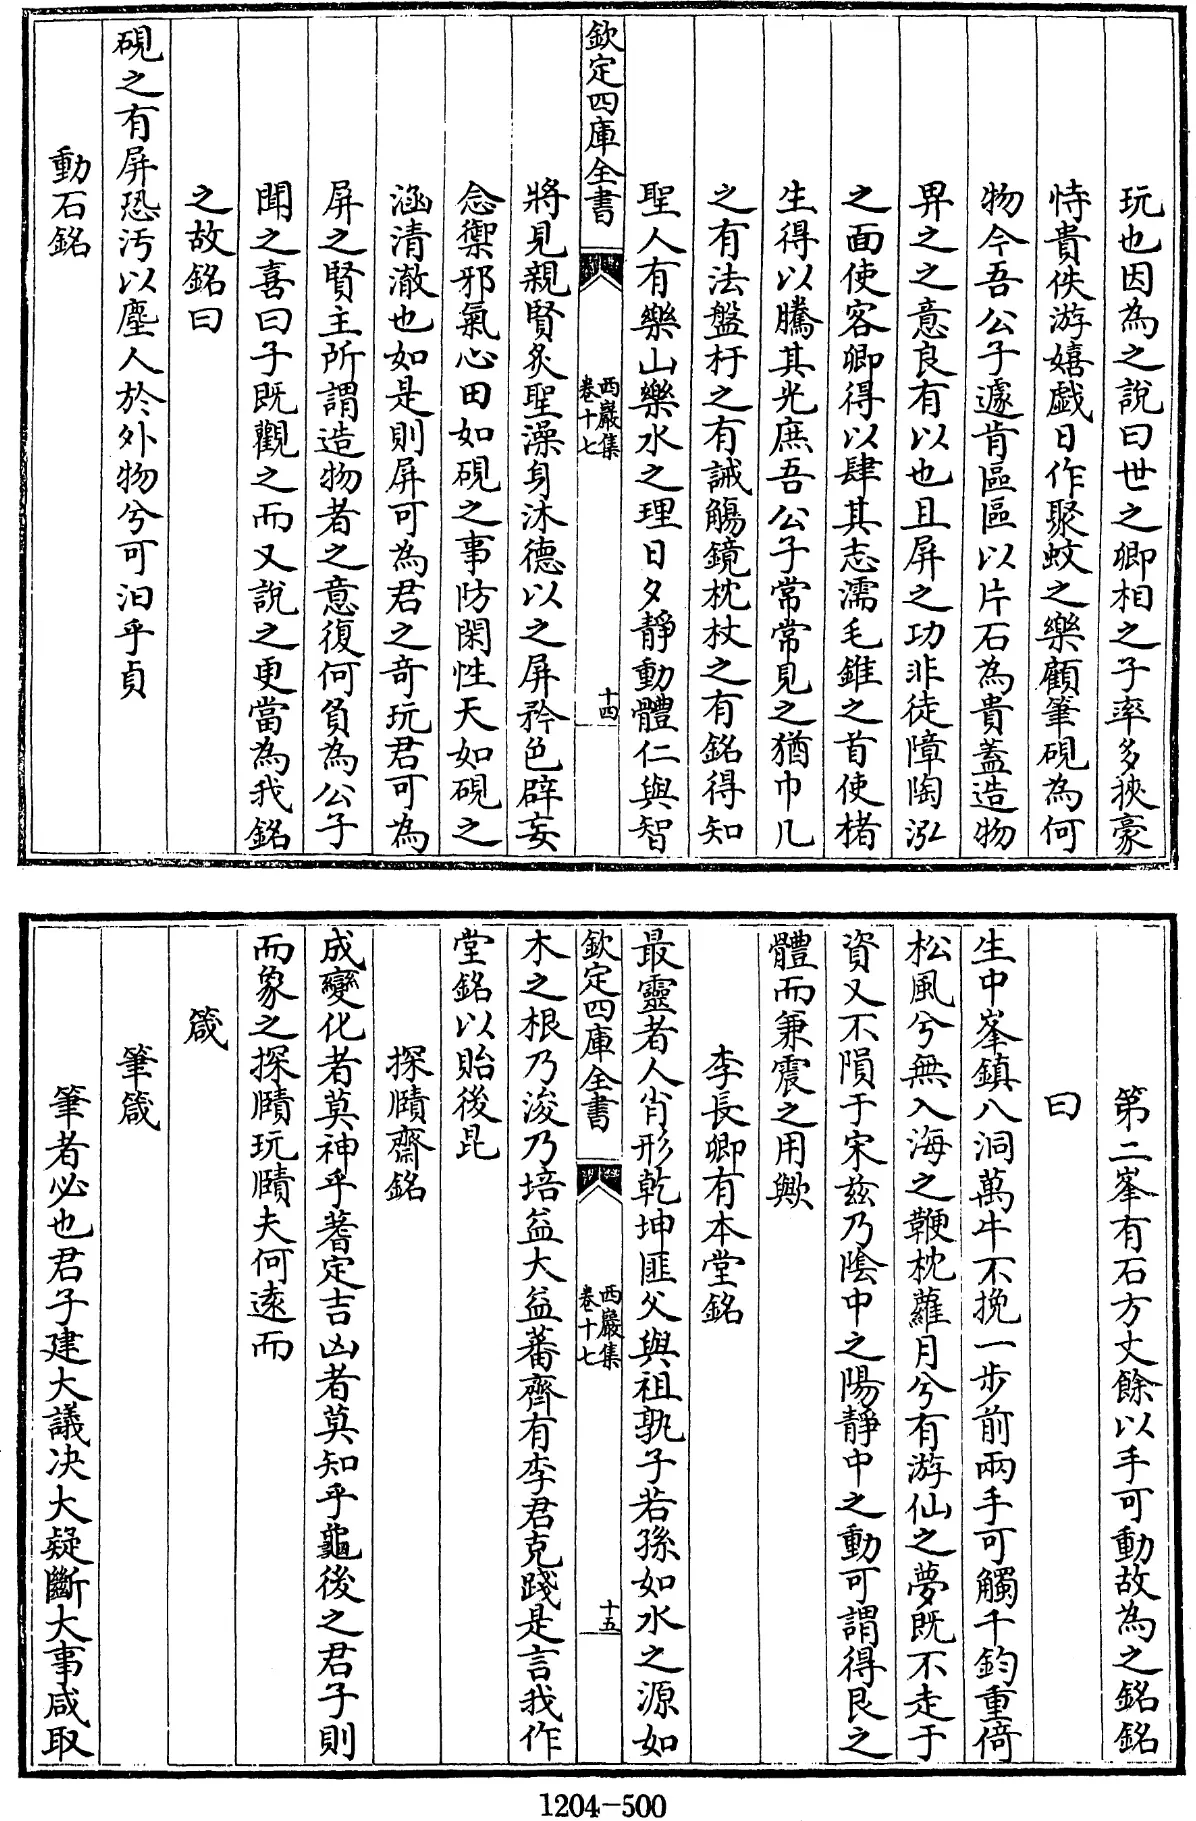 玩也因為之說曰世之卿相之子率多狹豪
恃貴佚游嬉戯日作聚蚊之樂顧筆硯為何
物今吾公子遽肯區區以片石為貴蓋造物
畀之之意良有以也且屏之功非徒障陶泓
之面使客卿得以肆其志濡毛錐之首使楮
生得以騰其光庶吾公子常常見之猶巾几
之有法盤杅之有誡觴鏡枕杖之有銘得知
聖人有樂山樂水之理日夕靜動體仁與智
欽定四庫全書
西巖集
卷十七
十四
將見親賢炙聖澡身沐德以之屏矜色辟妄
念禦邪氣心田如硯之事防閑性天如硯之
涵清澈也如是則屏可為君之奇玩君可為
屏之賢主所謂造物者之意復何負為公子
聞之喜曰子既觀之而又說之更當為我銘
之故銘曰
硯之有屏恐汚以塵人於外物兮可汩乎貞
動石銘
第二峯有石方丈餘以手可動故為之銘銘
曰
生中峯鎮八洞萬牛不挽一步前兩手可觸千鈞重倚
松風兮無入海之鞭枕蘿月兮有游仙之夢既不走于
資又不隕于宋兹乃陰中之陽靜中之動可謂得艮之
體而兼震之用歟
李長卿有本堂銘
最靈者人肖形乾坤匪父與祖孰子若孫如水之源如
欽定四庫全書
西巖集
卷十七
十五
木之根乃浚乃培益大益蕃齊有李君克踐是言我作
堂銘以貽後昆
探賾齋銘
成變化者莫神乎蓍定吉凶者莫知乎龜後之君子則
而象之探賾玩賾夫何遠而
箴
筆箴
筆者必也君子建大議決大疑斷大事咸取
1204-500